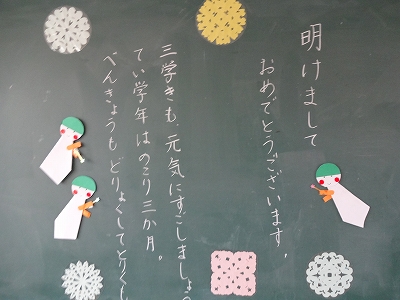 明けまして
おめでとうございます。
三学きも、元気にすごしましょう
てい学年はのこり三か月。
べんきょうもどりょくしてとりくし